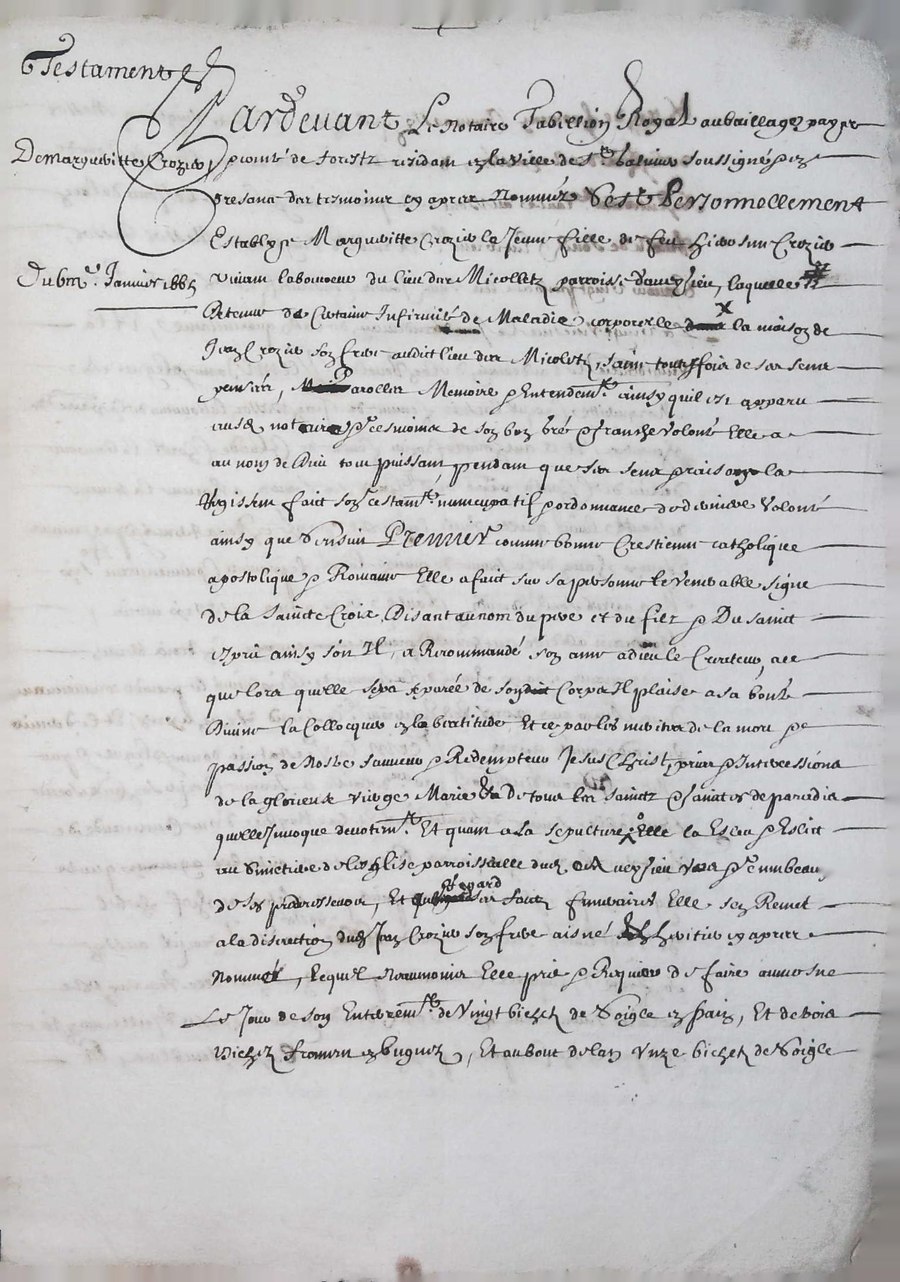 Testament
Pardevant Le Notaire Tabellion Royal au bailliage pays p
De Margueritte Crozier
comté de forestz residam en la ville de St. galmier soussigné p en
presance des tesmoins cy apres Nommés S'est Personnellement
Establye Margueritte Crozier la Jeune fille de feu Crozier
Du 6me. Janvier 1665
vivam laboureur du lieu des Micolletz parroisse daveysieu, laquelle
Detenue de Certaine Infirmité de Maladie corporelle la maison de
Jean Crozier son frere audict lieu des Micoletz, saine touteffois de ses sens
pensées, Parolles Memoire p Entendemt. ainsy quil est apparu
ausd notaire p tesmoins de son bon gré p franche volonté Elle a
au nom de Dieu tout puissant, pendam que ses sens p raison la
Regissent fait son testamt. nuncupatif p ordonnance de derniere volonté
ainsy que s'ensuit Premier comme bonne Crestienne catholique
apostolique p Romaine Elle a fait sur sa personne le venerable signe
de la saincte Croix, Disant au nom du pere et du filz p Du sainct
esprit ainsy soit Il, a Recommandé son ame a dieu le Createur, a ce
que lors quelle sera separée de son Corps Il plaise a sa bonté
Divine la Collocquer en la beatitude Et ce par les merites de la mort p
passion de Nostre sauveur p Redempteur Jesus Christ, prieres p Intercessions
de la glorieuse vierge Marie de tous les sainctz p sainctes de paradis
quelle Invoque devotemt. Et quant a la sepulture Elle la Esleu p Eslit
au Simetiere de leglise parroissialle dud aveysieu p tombeau
de ses predecessors, Et esgard ses funeraires Elle sen Remet
a la discretion dud Jean Crozier son frere aisné heritier cy apres
Nommé, Lequel neaumoins Elle prie p Requiere de faire aumosne
Le Jour de son Enterremt. de vingt bichetz de soigle en pain, Et de trois
bichetz froment en bugnes, Et au bout de lan unze bichetz de soigle